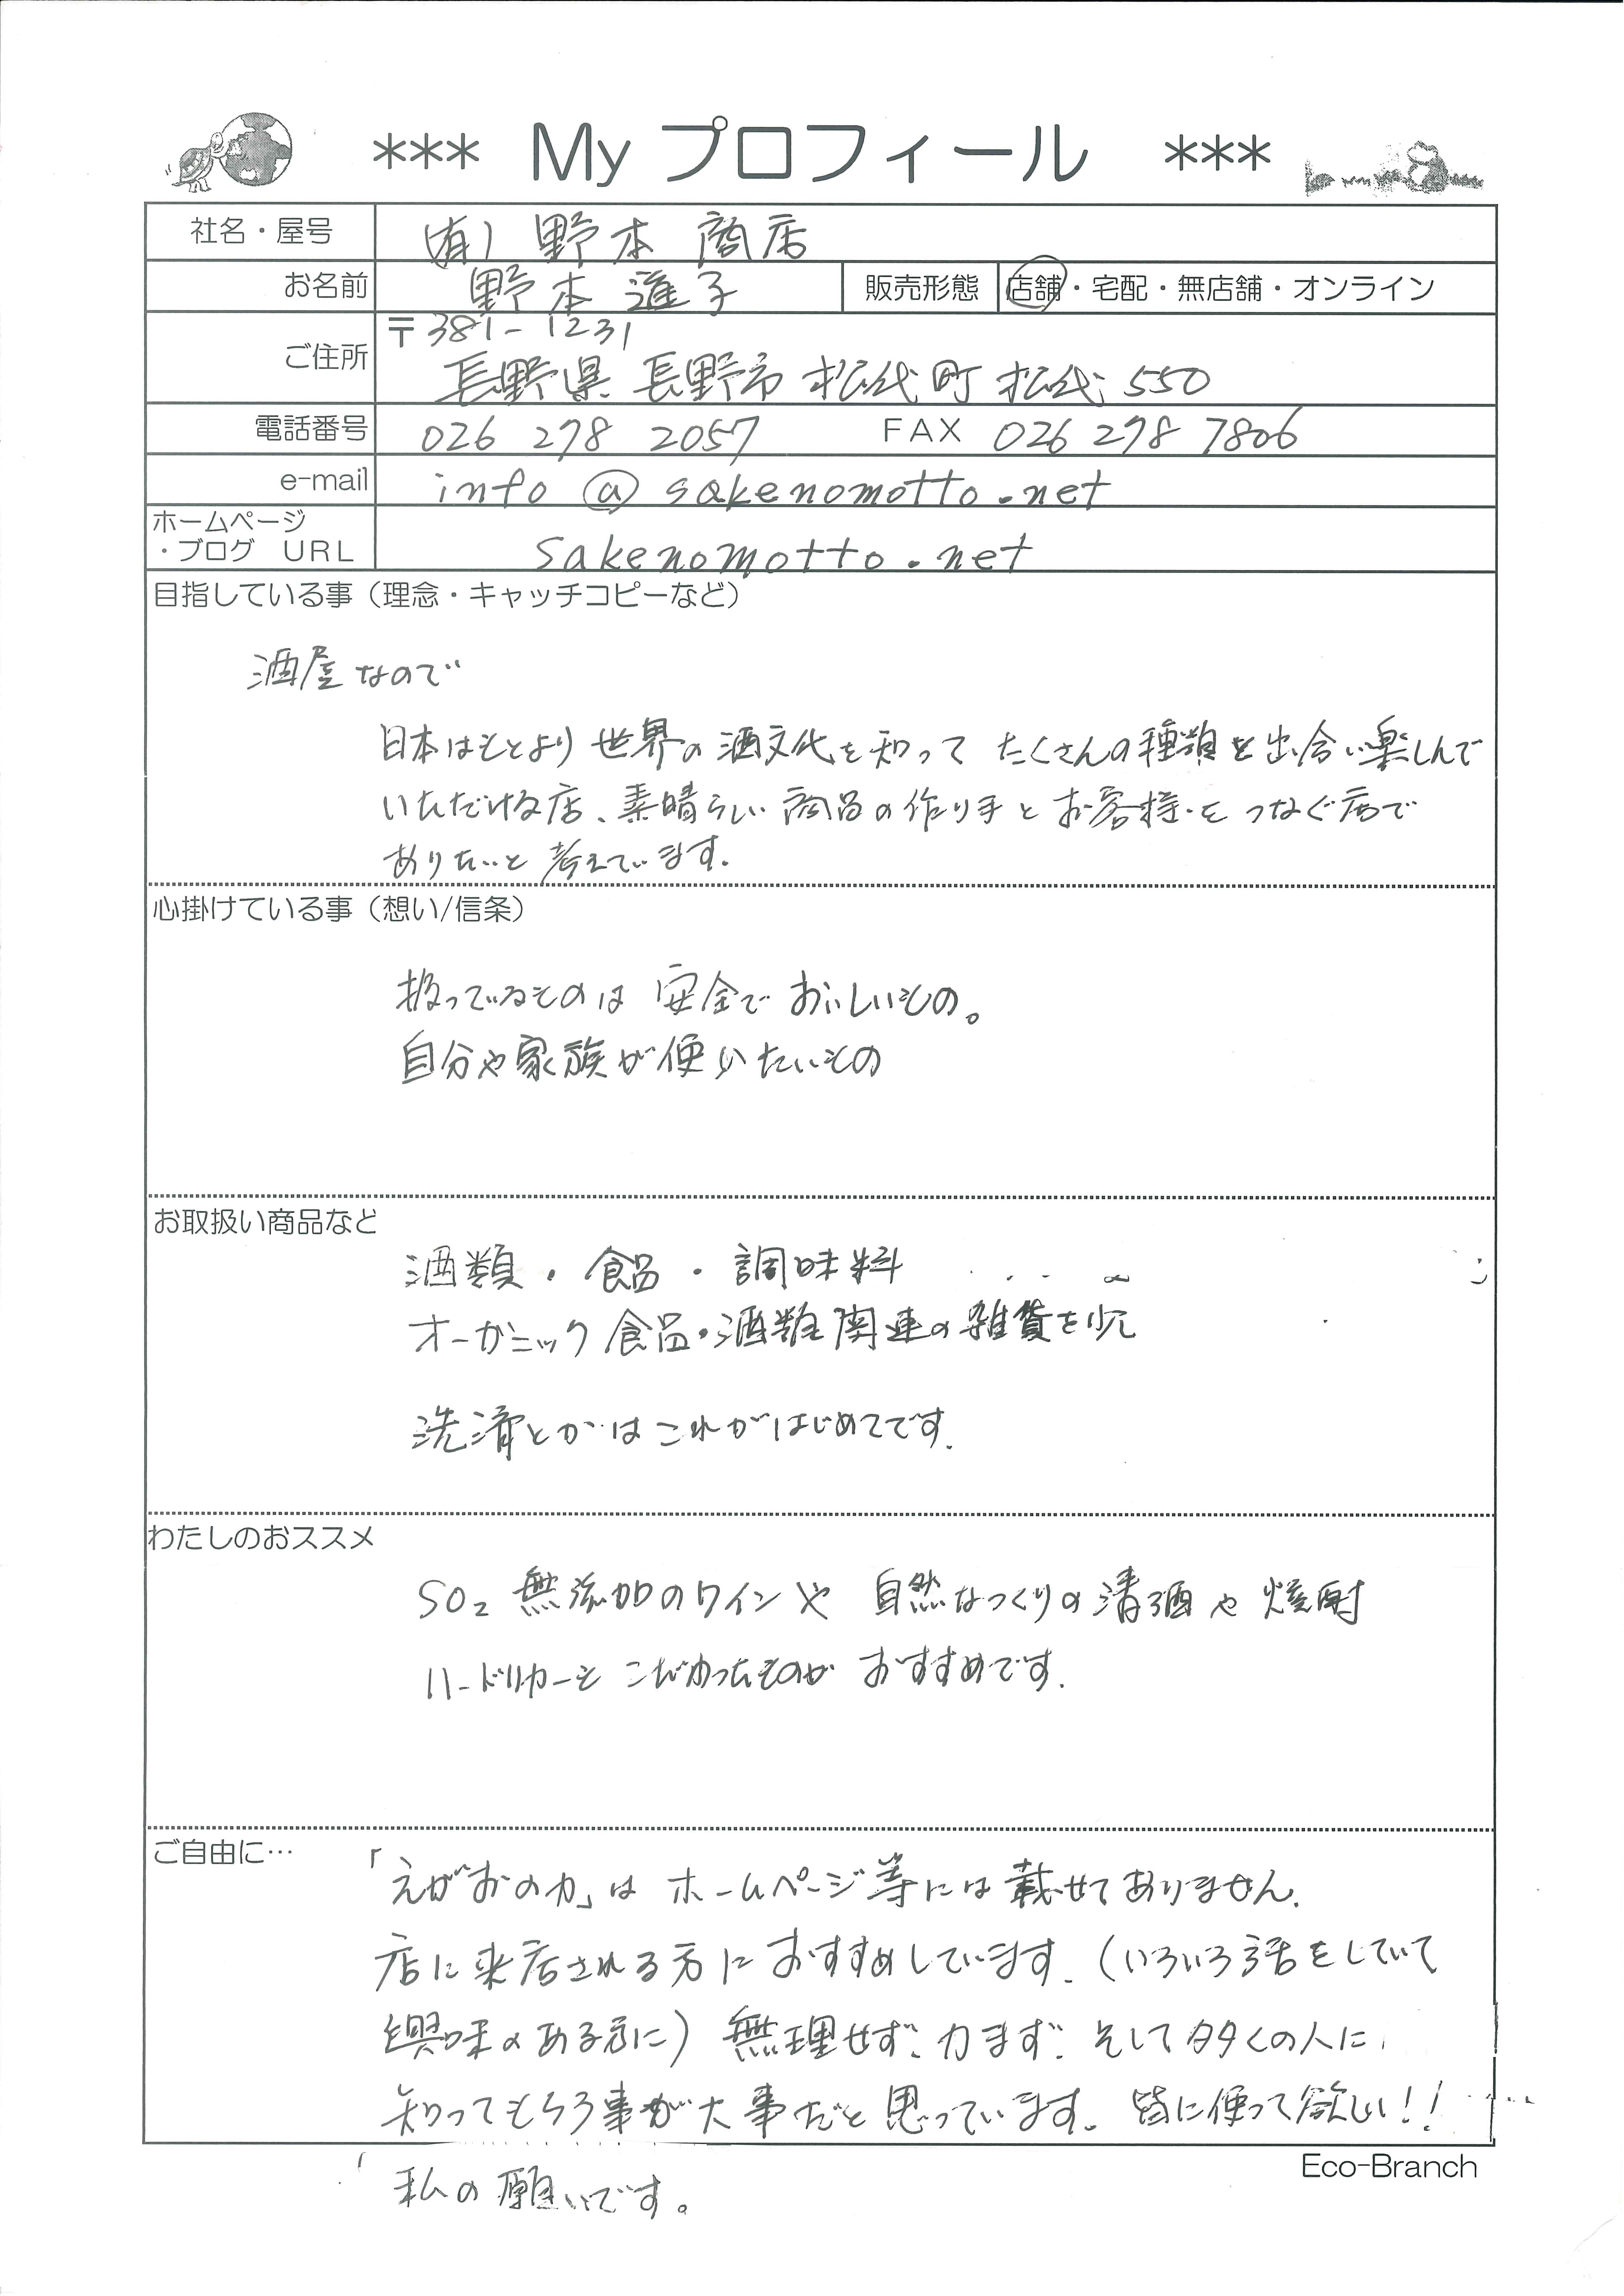 *** My プロフィール ***
社名・屋号 (有) 野本 商店
お名前 野本 進子 販売形態 店舗・宅配・無店舗・オンライン
ご住所 〒381-1231
長野県 長野市 松代町 松代 550
電話番号 026 278 2057 FAX 026 278 7806
e-mail info @ sakenomotto.net
ホームページ
・ブログ URL sakenomotto.net
目指している事(理念・キャッチコピーなど)
酒屋なので
日本はもとより 世界の酒文化を知って たくさんの種類と出合い楽しんで
いただける店、素晴らしい商品の作り手とお客様をつなぐ店で
ありたいと考えています.
心掛けている事(想い/信条)
扱っているものは 安全で おいしいもの。
自分や家族が使いたいもの
お取扱い商品など
酒類・食品・調味料
オーガニック食品・酒類関連の雑貨を少し
洗済とかはこれがはじめてです.
わたしのおススメ
SO2 無添加のワインや 自然なつくりの清酒や焼酎
ハードリカーも こだわったものが おすすめです.
ご自由に…
「えがおの力」は ホームページ等には載せてありません.
店に来店される方に おすすめしています. (いろいろ話をしていて
興味のある方に) 無理せず、力まず. そして多くの人に
知ってもらう事が大事だと思っています. 皆に使って欲しい!!
私の願いです。
Eco-Branch